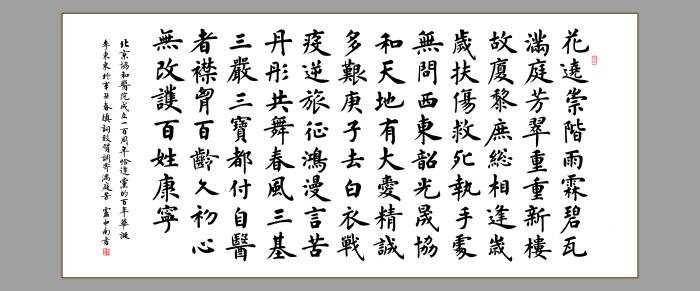 花遶崇階雨霖碧瓦
滿庭芳翠重重新樓
故廈黎庶總相逢歲
歲扶傷救死執手處
無問西東韶光晟協
和天地有大愛精誠
多艱庚子去白衣戰
疫逆旅征鴻漫言苦
丹彤共舞春風三基
三嚴三寶都付自醫
者襟胷百齡久初心
無改護百姓康寧
北京協和醫院成立一百周年恰逢黨的百年華誕
於辛丑春填詞致賀調寄滿庭芳 盧中南書